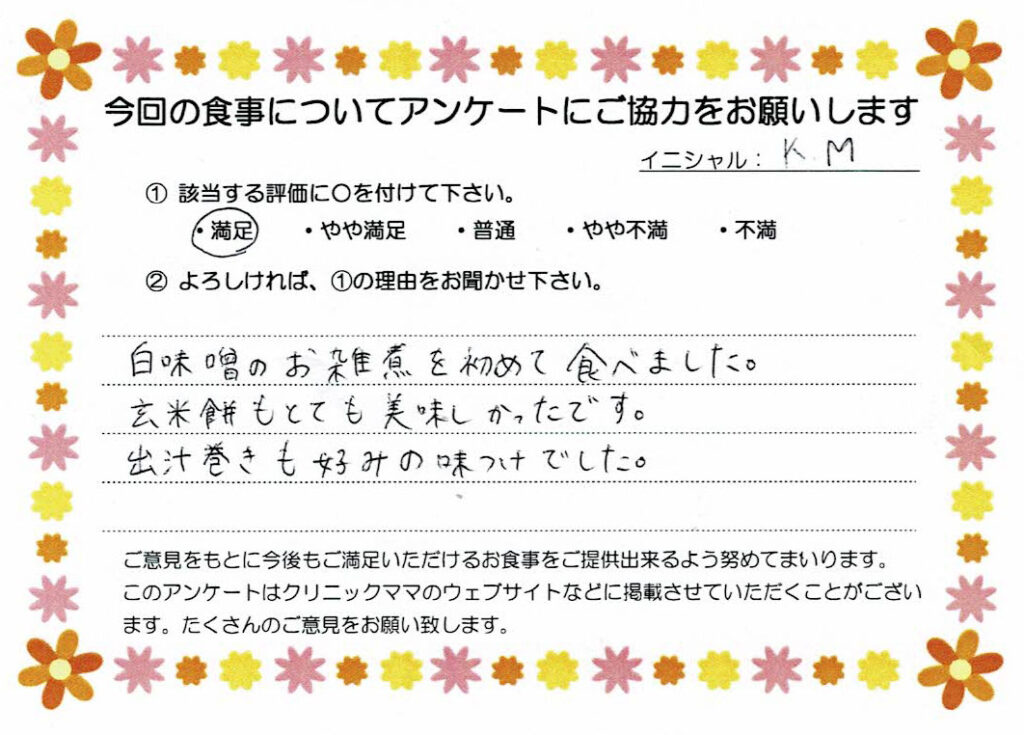 今回の食事についてアンケートにご協力をお願いします
イニシャル： K.M
① 該当する評価に〇を付けて下さい。
・満足 ・やや満足 ・普通 ・やや不満 ・不満
② よろしければ、①の理由をお聞かせ下さい。
白味噌のお雑煮を初めて食べました。
玄米餅もとても美味しかったです。
出汁巻きも好みの味つけでした。
ご意見をもとに今後もご満足いただけるお食事をご提供出来るよう努めてまいります。
このアンケートはクリニックママのウェブサイトなどに掲載させていただくことがござい
ます。たくさんのご意見をお願い致します。